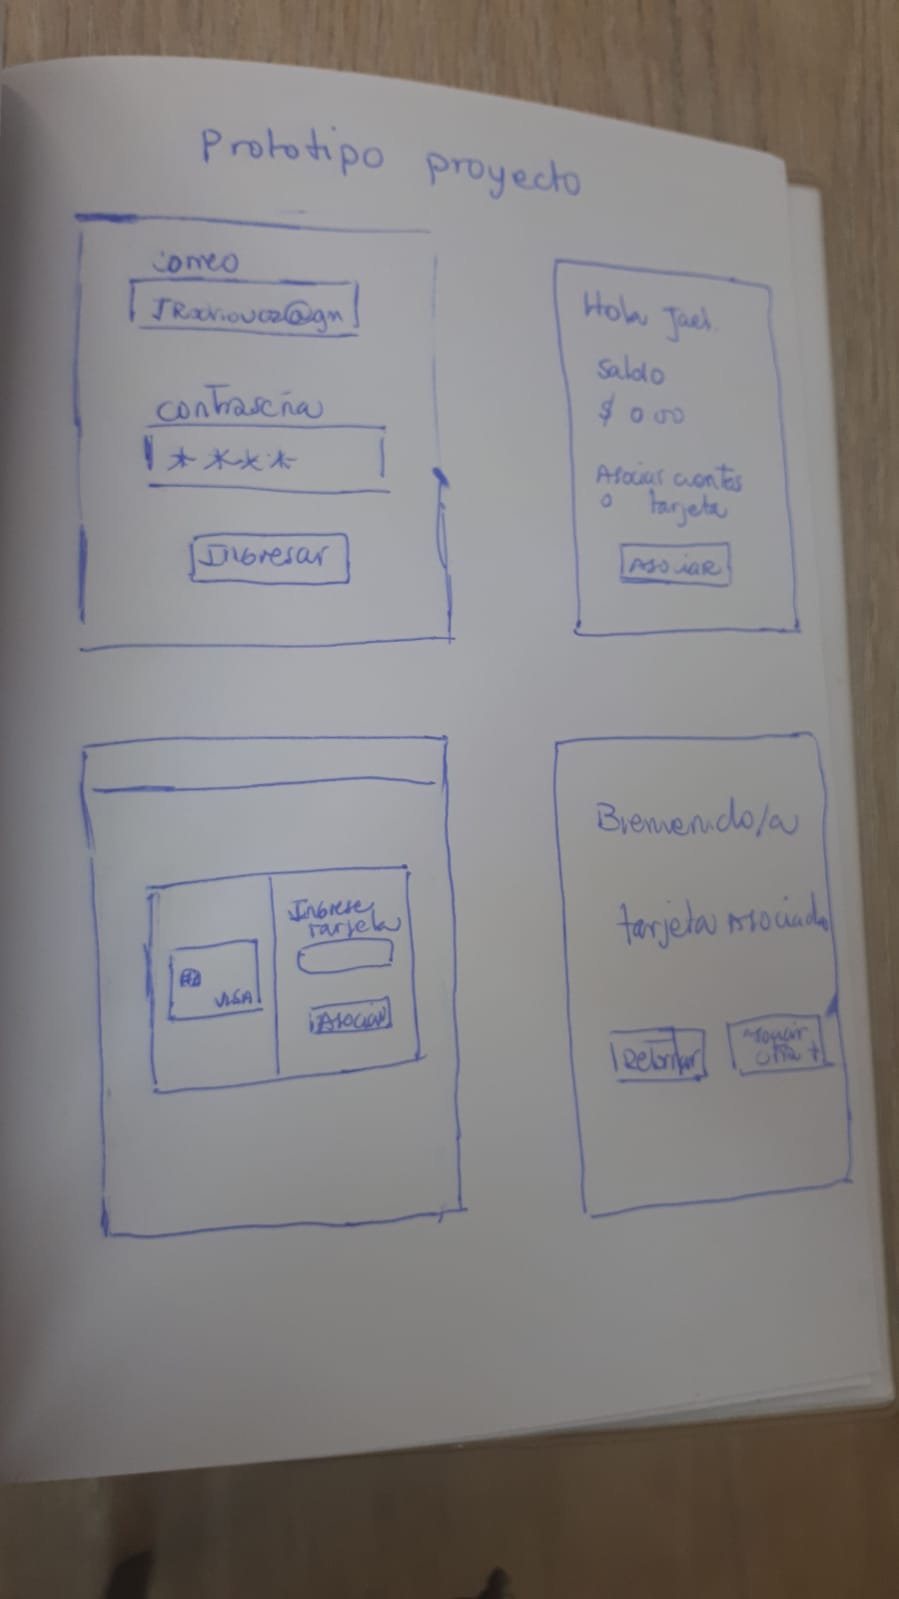 Prototipo proyecto
correo
JRodriguez@gm
contraseña
****
Ingresar
Hola Jael.
Saldo
$ 0 00
Asociar cuentas
o tarjeta
ASOCIAR
Ingrese
tarjeta
VISA
ASOCIAR
Bienvenido/a
tarjeta Asociada
Retornar
Asociar
otra +